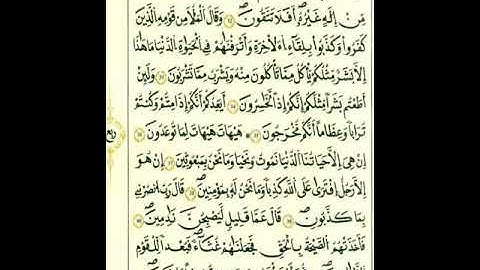 مِّنْ إِلَٰهٍ غَيْرُهُۥٓ أَفَلَا تَتَّقُونَ وَقَالَ ٱلْمَلَأُ مِن قَوْمِهِ ٱلَّذِينَ
كَفَرُوا۟ وَكَذَّبُوا۟ بِلِقَآءِ ٱلْأَخِرَةِ وَأَتْرَفْنَٰهُمْ فِى ٱلْحَيَوٰةِ ٱلدُّنْيَا مَا هَٰذَآ
إِلَّا بَشَرٌ مِّثْلُكُمْ يَأْكُلُ مِمَّا تَأْكُلُونَ مِنْهُ وَيَشْرَبُ مِمَّا تَشْرَبُونَ وَلَئِنْ
أَطَعْتُم بَشَرًا مِّثْلَكُمْ إِنَّكُمْ إِذًا لَّخَٰسِرُونَ أَيَعِدُكُمْ أَنَّكُمْ إِذَا مِتُّمْ وَكُنتُمْ
تُرَابًا وَعِظَٰمًا أَنَّكُم مُّخْرَجُونَ هَيْهَاتَ هَيْهَاتَ لِمَا تُوعَدُونَ
ربع
إِنْ هِىَ إِلَّا حَيَاتُنَا ٱلدُّنْيَا نَمُوتُ وَنَحْيَا وَمَا نَحْنُ بِمَبْعُوثِينَ إِنْ هُوَ
إِلَّا رَجُلٌ ٱفْتَرَىٰ عَلَى ٱللَّهِ كَذِبًا وَمَا نَحْنُ لَهُۥ بِمُؤْمِنِينَ قَالَ رَبِّ ٱنصُرْنِى
بِمَا كَذَّبُونِ قَالَ عَمَّا قَلِيلٍ لَّيُصْبِحُنَّ نَٰدِمِينَ
فَأَخَذَتْهُمُ ٱلصَّيْحَةُ بِٱلْحَقِّ فَجَعَلْنَٰهُمْ غُثَآءً فَبُعْدًا لِّلْقَوْمِ